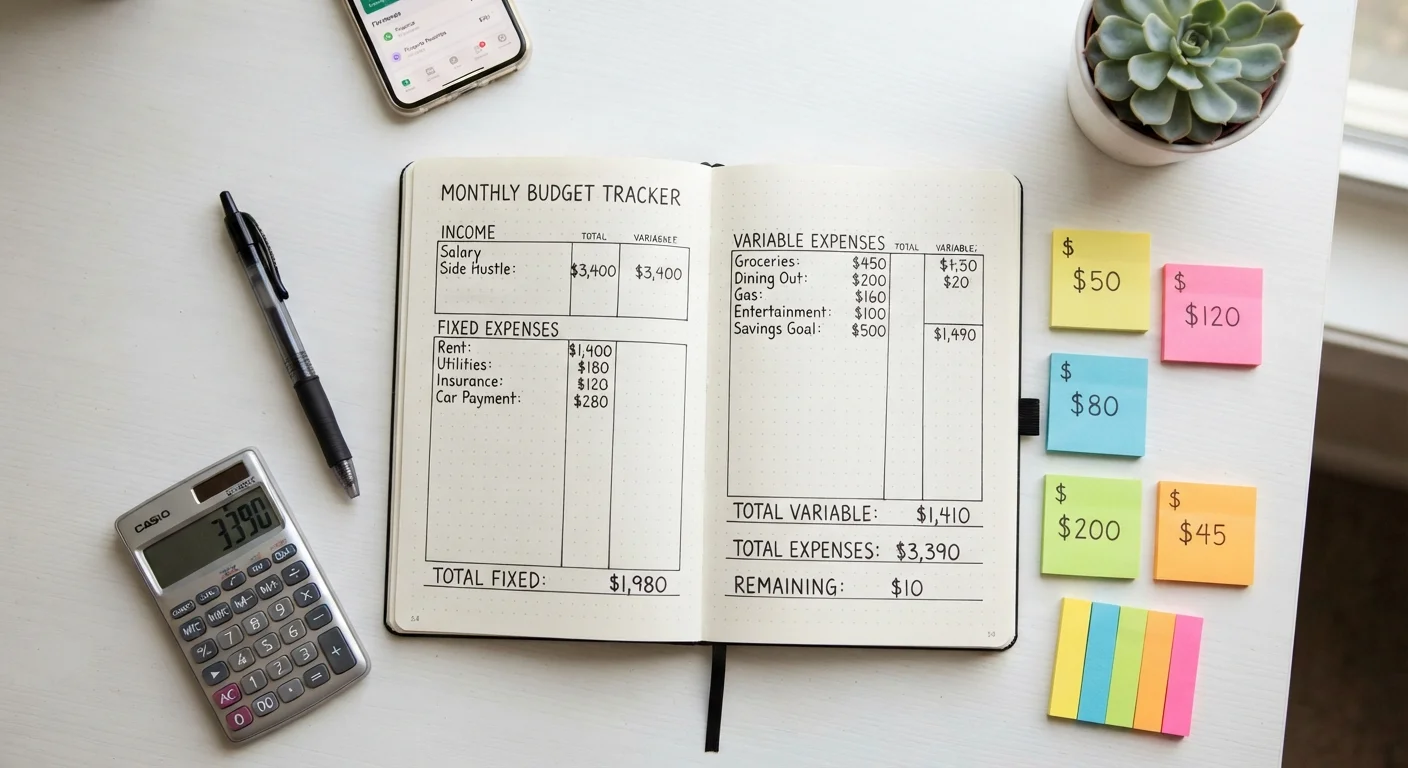 MONTHLY BUDGET TRACKER
INCOME TOTAL
Salary
Side Hustle: $3,400 $3,400
FIXED EXPENSES
Rent: $1,400
Utilities: $180
Insurance: $120
Car Payment: $280
TOTAL FIXED: $1,980
VARIABLE EXPENSES TOTAL VARIABLE:
Groceries: $450
Dining Out: $200 $20
Gas: $160
Entertainment: $100
Savings Goal: $500 $1,490
TOTAL VARIABLE: $1,410
TOTAL EXPENSES: $3,390
REMAINING: $10
$
$50
$
$120
$
$80
$
$200
$
$45
CASIO
3390
7 8 9
4 5 6
1 2 3
AC
0 00 . =